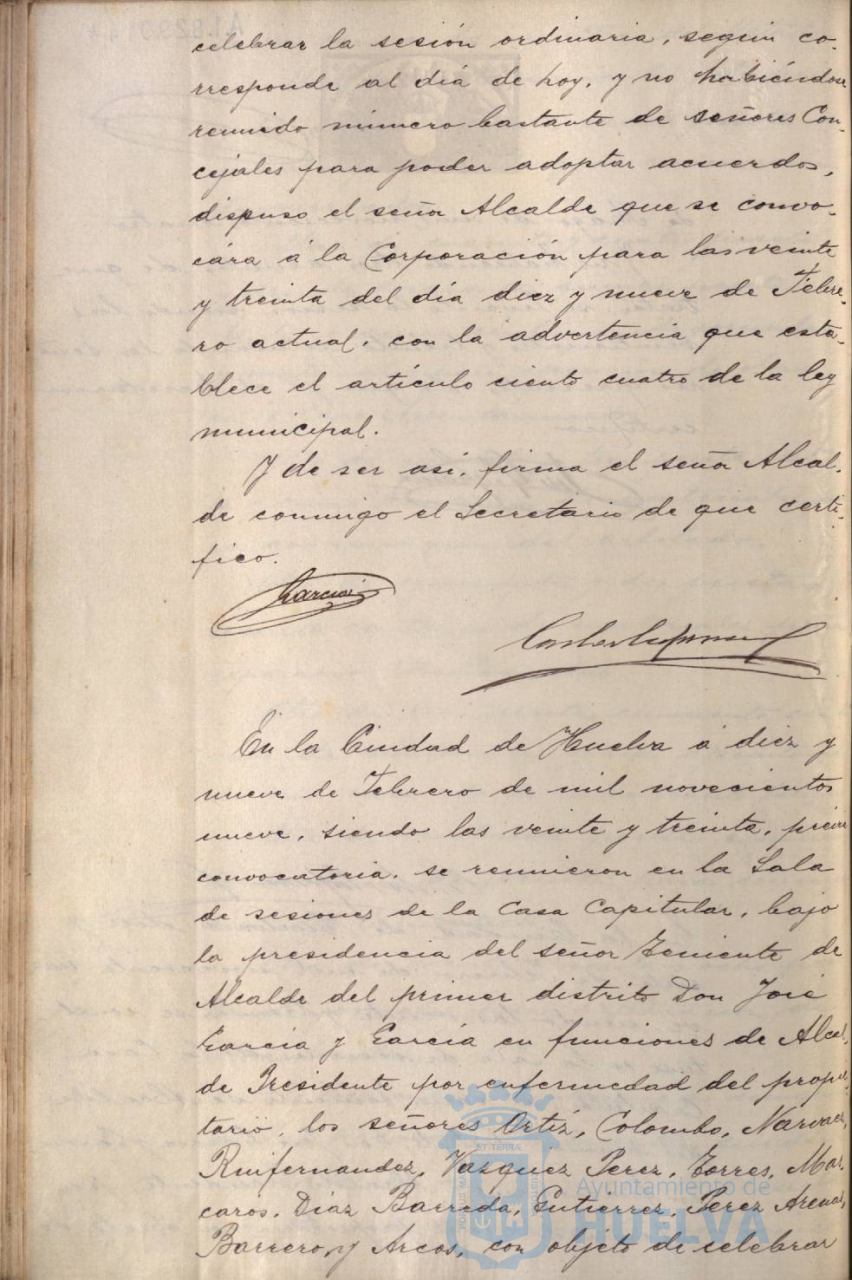 celebrar la sesión ordinaria, según co-
rresponde al día de hoy, y no habiéndose
reunido número bastante de señores Con-
cejales para poder adoptar acuerdos,
dispuso el señor Alcalde que se convo-
cára á la Corporación para las veinte
y treinta del día diez y nueve de Febre-
ro actual, con la advertencia que esta-
blece el artículo ciento cuatro de la ley
municipal.
Y de ser así, firma el señor Alcal-
de conmigo el Secretario de que certi-
fico.
García
En la Ciudad de Huelva á diez y
nueve de Febrero de mil novecientos
nueve, siendo las veinte y treinta, prévia
convocatoria, se reunieron en la Sala
de sesiones de la Casa Capitular, bajo
la presidencia del señor Teniente de
Alcalde del primer distrito Don José
García y García en funciones de Alcal-
de Presidente por enfermedad del propie-
tario, los señores Ortíz, Colombo, Narvaez,
Ruifernandez, Vazquez Perez, Torres, Mas-
caros, Díaz Barreda, Gutiérrez, Perez Arenas,
Barrero, y Arcos, con objeto de celebrar
Ayuntamiento de
HUELVA